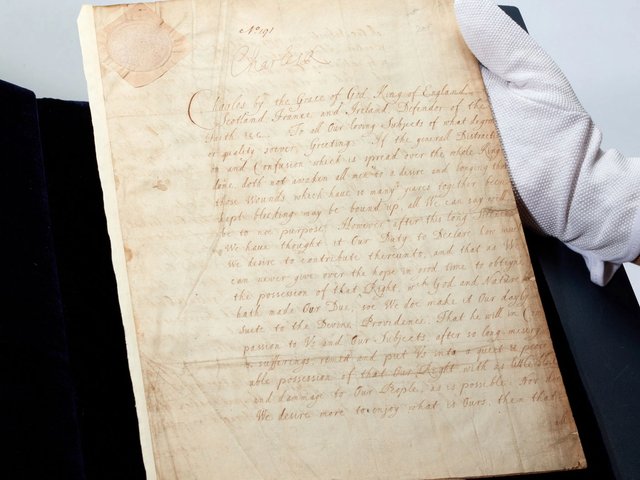 No 191
Charles R
Charles by the Grace of God King of England
Scotland France and Ireland Defendor of the
Faith &c. To all Our loving Subjects of what degree
or quality soever, Greeting. If the general Distracti
on and Confusion which is spread over the whole King
dome, doth not awaken all men to a desire and longing that
those Wounds which have so many yeares together been
kept bleeding may be bound up, all We can say will
be to no purpose. However after this long
We have thought it Our Duty to Declare how much
We desire to contribute thereunto, and that as We
can never give over the hope in good time to obteyn
the possession of that Right, wch God and Nature
hath made Our Due, soe We doe make it Our dayly
suite to the Divine Providence, That he will in Com
passion to Us and Our Subjects, after so long misery
& sufferings remitt and put Us into a quiet & peace
able possession of that Our Right with as little blood
and damage to Our People, as is possible. Nor doe
We desire more to enjoy what is Ours, then that
all